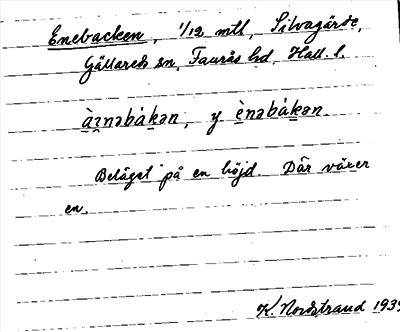 Enebacken, 1/12 mtl, Silvagärde,
Gällareds sn, Faurås hd, Hall. l.
y ènəbákən.
Beläget på en höjd. Där växer
en.
K. Nordstrand 193